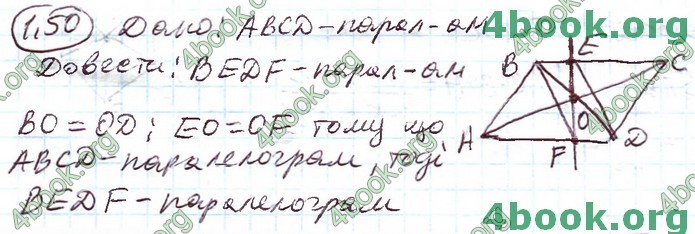 1.50 Дано: ABCD-парал-ам
Довести: BEDF-парал-ам
BO=OD; EO=OF тому що
ABCD-паралелограм, тоді
BEDF-паралелограм
B E C
O
A F D
4book.org
4book.org
4book.org
4book.org
4book.org
4book.org
4book.org
4book.org